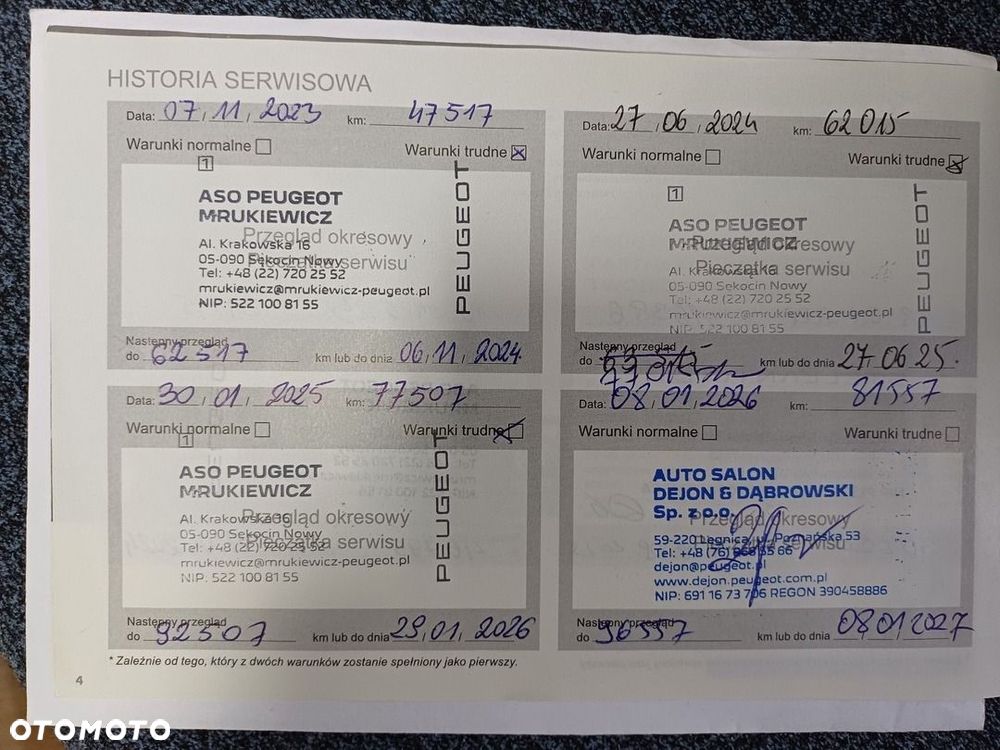 HISTORIA SERWISOWA
Data: 07, 11, 2023 km: 47517
Warunki normalne Warunki trudne
1
ASO PEUGEOT
MRUKIEWICZ
PEUGEOT
Przegląd okresowy
Al. Krakowska 16
05-090 Sękocin Nowy
Pieczątka serwisu
Tel: +48 (22) 720 25 52
mrukiewicz@mrukiewicz-peugeot.pl
NIP: 522 100 81 55
Następny przegląd
do 62517 km lub do dnia 06, 11, 2024
Data: 27, 06, 2024 km: 62015
Warunki normalne Warunki trudne
1
ASO PEUGEOT
MRUKIEWICZ
PEUGEOT
Przegląd okresowy
Pieczątka serwisu
Al. Krakowska 16
05-090 Sękocin Nowy
Tel: +48 (22) 720 25 52
mrukiewicz@mrukiewicz-peugeot.pl
NIP. 522 100 81 55
Następny przegląd
do 77015 km lub do dnia 27.06 25.
Data: 30, 01, 2025 km: 77507
Warunki normalne Warunki trudne
1
ASO PEUGEOT
MRUKIEWICZ
PEUGEOT
Al. Krakowska 16
Przegląd okresowy
05-090 Sękocin Nowy
Pieczątka serwisu
Tel: +48 (22) 720 25 52
mrukiewicz@mrukiewicz-peugeot.pl
NIP. 522 100 81 55
Następny przegląd
do 92507 km lub do dnia 29,01, 2026
Data: 08, 01, 2026 km: 81557
Warunki normalne Warunki trudne
AUTO SALON
DEJON & DĄBROWSKI
Sp. z o.o.
Przegląd okresowy
59-220 Legnica, ul. Poznańska 53
Pieczątka serwisu
Tel: +48 (76) 855 66
dejon@peugeot.pl
www.dejon.peugeot.com.pl
NIP: 691 16 73 706 REGON 390458886
Następny przegląd
do 96557 km lub do dnia 08.01.2027
* Zależnie od tego, który z dwóch warunków zostanie spełniony jako pierwszy.
4
OTOMOTO